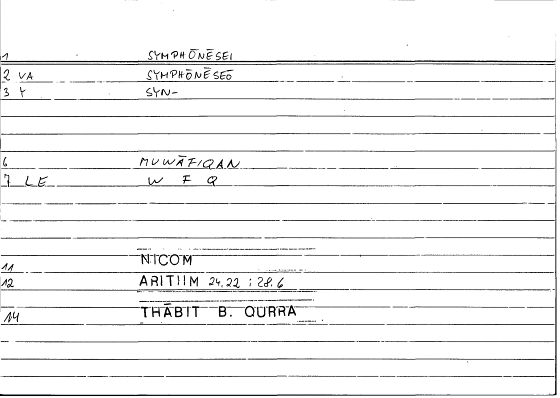 1 SYMPHŌNĒSEI
2 VA SYMPHŌNĒSEŌ
3 Y SYN-
6 MUWĀFIQAN
7 LE W F Q
11 NICOM
12 ARITIIM 24.22 : 28.6
14 THĀBIT B. QURRA